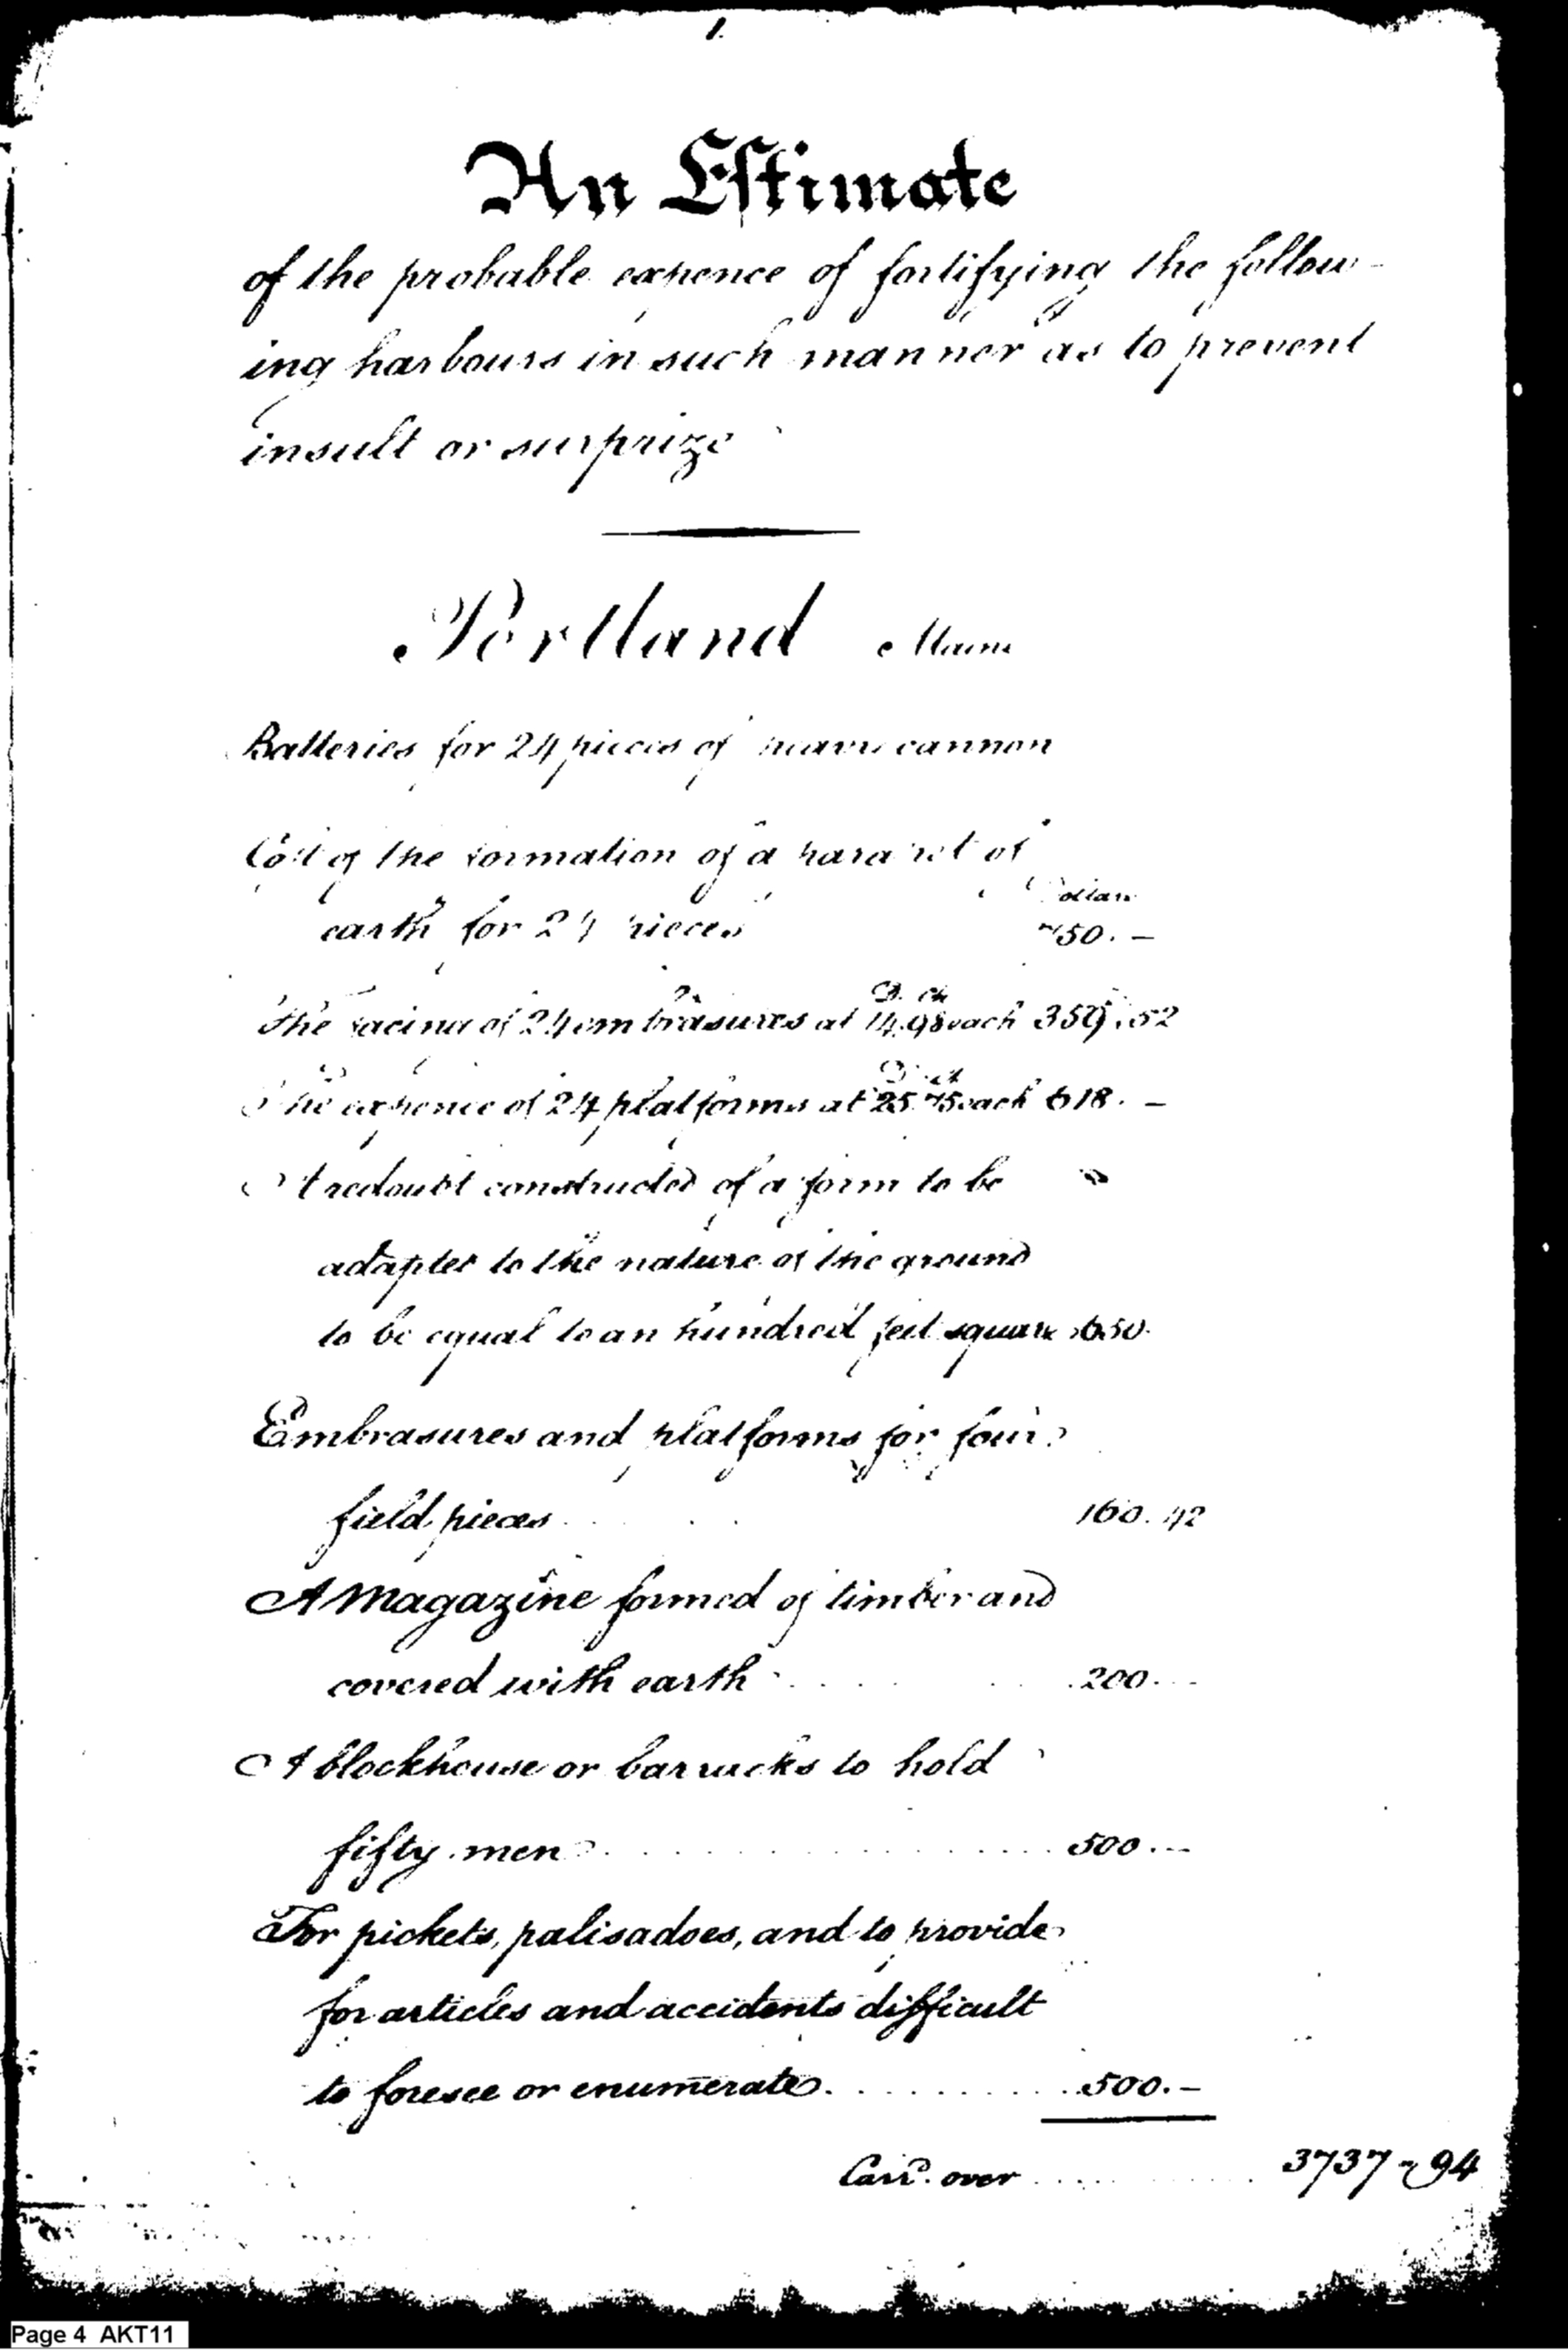 1.
An Estimate
of the probable expence of fortifying the follow-
ing harbours in such manner as to prevent
insult or surprize
Portland Maine
Batteries for 24 pieces of heavy cannon
Cost of the formation of a parapet of
Dollars
earth for 24 pieces 750. —
D. Cts
The facing of 24 embrasures at 14.98 each 359.52
D. ct
The expence of 24 platforms at 25.75 each 618. —
A redoubt constructed of a form to be
adapted to the nature of the ground
to be equal to an hundred feet square 650.
Embrasures and platforms for four
field pieces . . . . 160.42
A Magazine formed of timber and
covered with earth . . . . . . 200. —
A blockhouse or barracks to hold
fifty men . . . . . . . . . . . . 500. —
For pickets, palisadoes, and to provide
for articles and accidents difficult
to foresee or enumerate . . . . . . . . 500. —
Carrd. over . . . . . . . . 3737 " 94
Page 4 AKT11